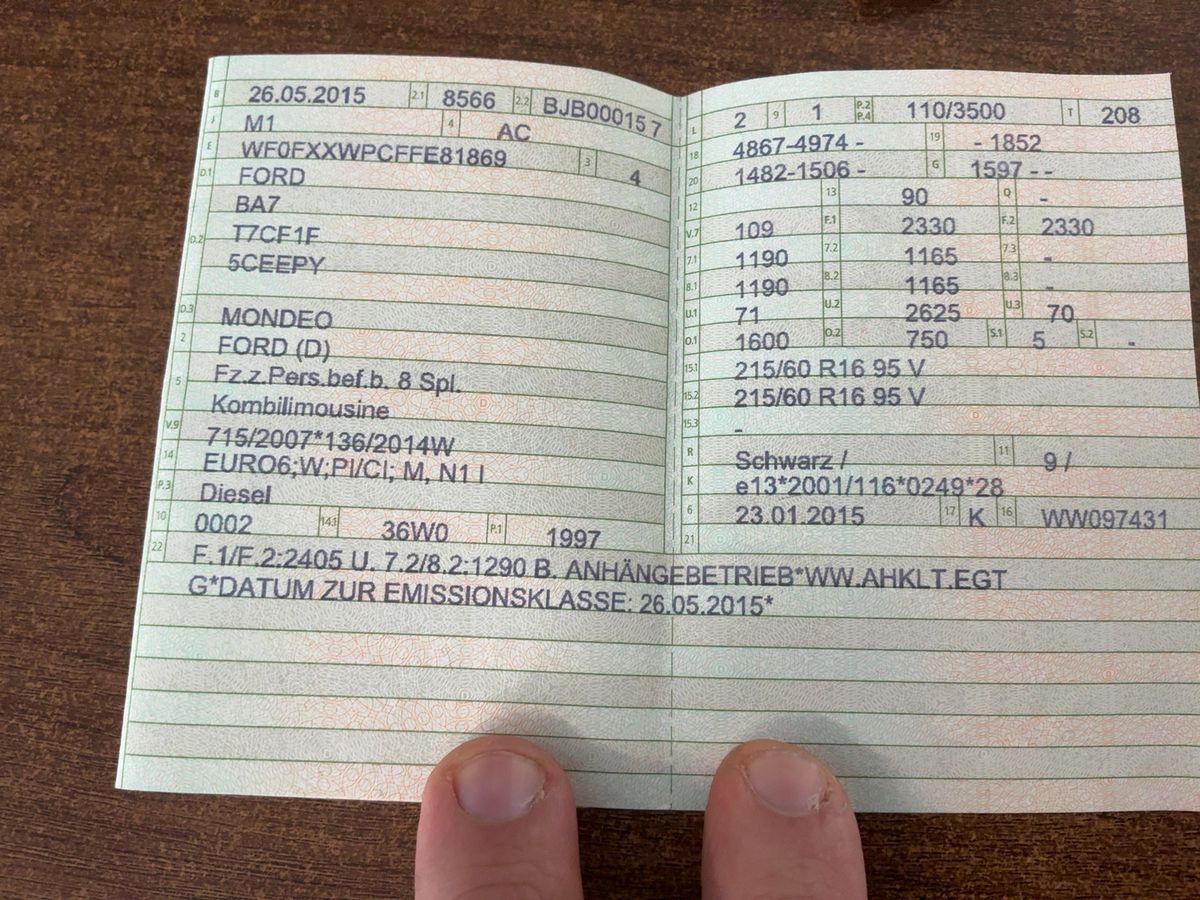 B 26.05.2015 2.1 8566 2.2 BJB00015 7
J M1 4 AC
E WF0FXXWPCFFE81869 3 4
D.1 FORD
BA7
D.2 T7CF1F
5CEEPY
D.3 MONDEO
2 FORD (D)
5 Fz.z.Pers.bef.b. 8 Spl.
Kombilimousine
V.9 715/2007*136/2014W
14 EURO6;W;PI/CI; M, N1 I
P.3 Diesel
10 0002 14.1 36W0 P.1 1997
L 2 9 1 P.2 P.4 110/3500 T 208
18 4867-4974 - 19 - 1852
20 1482-1506 - G 1597 - -
12 13 90 Q -
V.7 109 F.1 2330 F.2 2330
7.1 1190 7.2 1165 7.3 -
8.1 1190 8.2 1165 8.3 -
U.1 71 U.2 2625 U.3 70
O.1 1600 O.2 750 S.1 5 S.2 -
15.1 215/60 R16 95 V
15.2 215/60 R16 95 V
15.3 -
R Schwarz / 11 9 /
K e13*2001/116*0249*28
6 23.01.2015 17 K 16 WW097431
21
22 F.1/F.2:2405 U. 7.2/8.2:1290 B. ANHÄNGEBETRIEB*WW.AHKLT.EGT
G*DATUM ZUR EMISSIONSKLASSE: 26.05.2015*